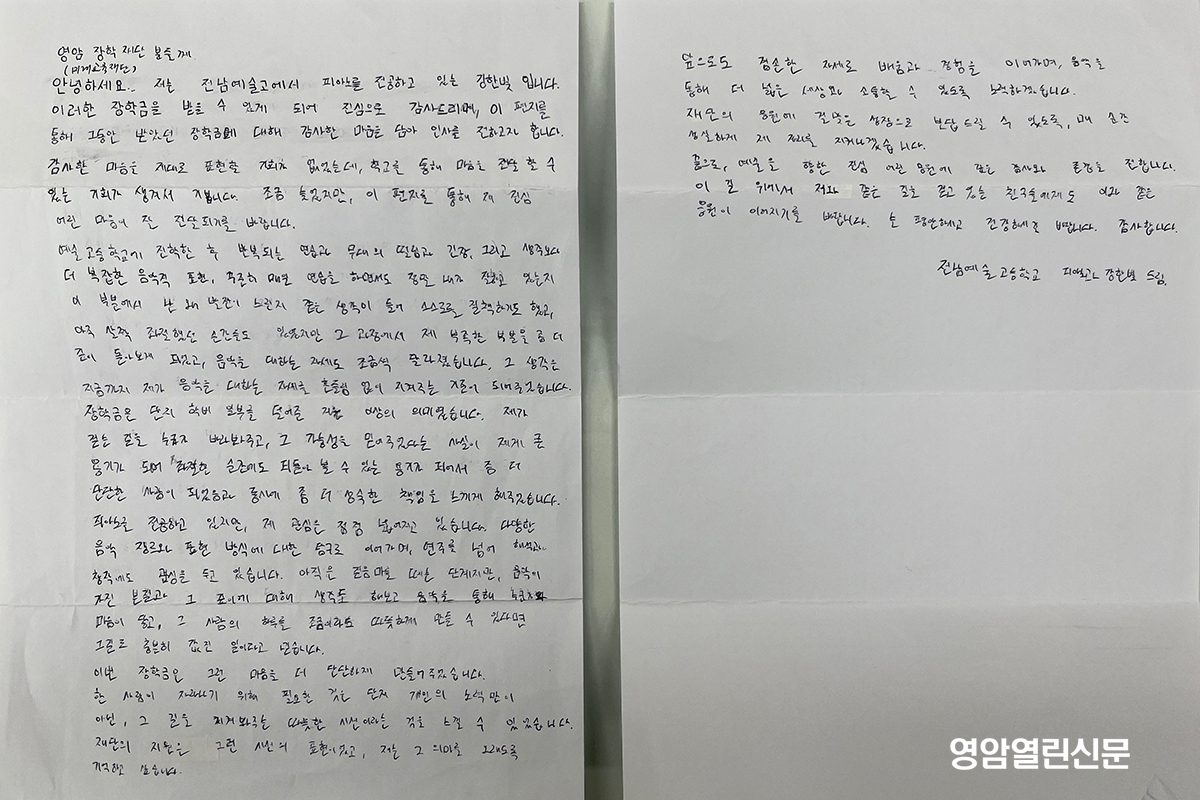 영암 장학재단 분들께
(미래교육재단)
안녕하세요. 저는 전남예술고에서 피아노를 전공하고 있는 강한빛 입니다.
이러한 장학금을 받을 수 있게 되어 진심으로 감사드리며, 이 편지를
통해 그동안 받았던 장학금에 대해 감사한 마음을 담아 인사를 전하고자 합니다.
감사한 마음을 제대로 표현할 기회가 없었는데, 학교를 통해 마음을 전달 할 수
있는 기회가 생겨서 기쁩니다. 조금 늦었지만, 이 편지를 통해 제 진심
어린 마음이 잘 전달되기를 바랍니다.
예술고등학교에 진학한 후 반복되는 연습과 무대의 떨림과 긴장, 그리고 생각보다
더 복잡한 음악적 표현, 꾸준히 매번 연습을 하면서도 정말 내가 잘하고 있는지
이 부분에서 난 왜 발전이 느린지 같은 생각이 들어 스스로를 질책하기도 했고,
아주 살짝 좌절했던 순간들도 있었지만 그 과정에서 제 부족한 부분을 좀 더
깊이 돌아보게 되었고, 음악을 대하는 자세도 조금씩 달라졌습니다. 그 생각은
지금까지 제가 음악을 대하는 자세를 흔들림 없이 지켜주는 힘이 되어주었습니다.
장학금은 단지 학비 부분을 덜어준 지원 이상의 의미였습니다. 제가
걷는 길을 누군가 바라봐주고, 그 가능성을 믿어주었다는 사실이 제게 큰
용기가 되어 좌절한 순간에도 되돌아 볼 수 있는 용기가 되어서 좀 더
단단한 사람이 되었음과 동시에 좀 더 성숙한 책임을 느끼게 해주었습니다.
피아노를 전공하고 있지만, 제 관심은 점점 넓어지고 있습니다. 다양한
음악 장르와 표현 방식에 대한 탐구로 이어가며, 연주를 넘어 해석과
창작에도 관심을 두고 있습니다. 아직은 걸음마를 떼는 단계지만, 음악이
가진 본질과 그 깊이에 대해 생각도 해보고 음악을 통해 누군가와
마음이 닿고, 그 사람의 하루를 조금이라도 따뜻하게 만들 수 있다면
그걸로 충분히 값진 일이라고 믿습니다.
이번 장학금은 그런 마음을 더 단단하게 만들어주었습니다.
한 사람이 자라나기 위해 필요한 것은 단지 개인의 노력만이
아닌, 그 길을 지켜봐주는 따뜻한 시선이라는 것을 느낄 수 있었습니다.
재단의 지원은 그런 시선의 표현이었고, 저는 그 의미를 오래도록
기억하고 싶습니다.
앞으로도 겸손한 자세로 배움과 경험을 이어가며, 음악을
통해 더 넓은 세상과 소통할 수 있도록 노력하겠습니다.
재단의 응원에 걸맞은 성장으로 보답 드릴 수 있도록, 매 순간
성실하게 제 자리를 지켜나가겠습니다.
끝으로, 예술을 향한 진심 어린 응원에 깊은 감사와 존경을 전합니다.
이 길 위에서 저와 같은 길을 걷고 있는 친구들에게도 이와 같은
응원이 이어지기를 바랍니다. 늘 평안하고 건강하시길 바랍니다. 감사합니다.
전남예술고등학교 피아노과 강한빛 드림.
영암열린신문